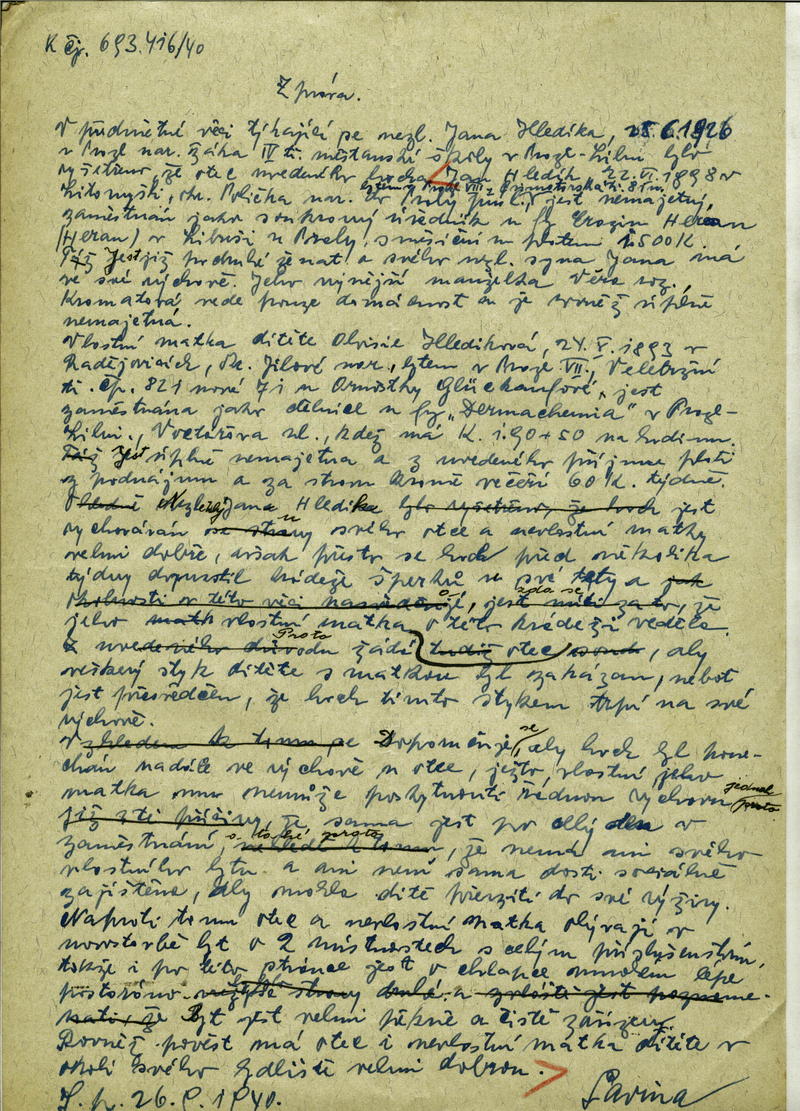 K čj. 693.416/40
Zpráva.
V předmětné věci týkající se nezl. Jana Hledíka, 28.6.1926
v Praze nar. žáka IV tř. měšťanské školy v Praze-Libni bylo
vyšetřeno, že otec uvedeného hocha Jan Hledík 22.VI.1898 v
Litomyšli, okr. Polička nar. do Prahy přísl., jest nemajetný,
bytem v Praze VII
zaměstnán jako soukromý úředník u fy Heran
(Heran) v Libuši u Prahy, s měsíčním platem 1.500 K.
Týž Jest již po druhé ženat a svého nezl. syna Jana má
ve své výchově. Jeho nynější manželka Věra roz.
Kromatová vede pouze domácnost a je rovněž úplně
nemajetná.
Vlastní matka dítěte Aloisie Hledíková, 24.V.1893 v
Radějovicích, ok. Jílové nar., bytem v Praze VII., Veletržní
tř. čp. 821 nové 7 i u Glückaufové, jest
zaměstnána jako dělnice u fy „Dermachemia" v Praze-
Libni., Voctářova ul., kdež má K. 1.90+50 na hodinu.
Táž Jest úplně nemajetna a z uvedeného příjmu platí
z podnájmu a za stravu kromě večeří 60 K. týdně.
Ohledně Nezletilý Jana Hledíka bylo vyšetřeno, že hoch jest
vychováván se strany u svého otce a nevlastní matky
velmi dobře, avšak přesto se hoch před několika
týdny dopustil krádeže šperků u své tety a jak
okolnosti v této věci nasvědčují, jest míti za to, že
zdá se
jeho matk vlastní matka o této krádeži věděla.
Z uvedeného důvodu Proto žádá tudíž otec soud, aby
veškerý styk dítěte s matkou byl zakázán, neboť
jest přesvědčen, že hoch tímto stykem trpí na své
výchově.
Vzhledem k tomu se Doporučuje se, aby hoch byl pone-
chán nadále ve výchově u otce, ježto vlastní jeho
matka mu nemůže poskytnouti řádnou výchovu jednak proto
již z té příčiny, že sama jest po celý den v
zaměstnání, a také proto nehledě k tomu, že nemá ani svého
vlastního bytu a ani není sama dosti sociálně
zajištěna, aby mohla dítě převzíti do své výživy.
Naproti tomu otec a nevlastní matka obývají v
novostavbě byt o 2 místnostech s celým příslušenstvím,
takže i po této stránce jest o chlapce mnohem lépe
postaráno než se strany druhé a zvláště jest pozname-
nati, že Byt jest velmi pěkně a čistě zařízen.
Rovněž pověst má otec i nevlastní matka dítěte v
okolí svého bydliště velmi dobrou.
26.9.1940.
Pavina